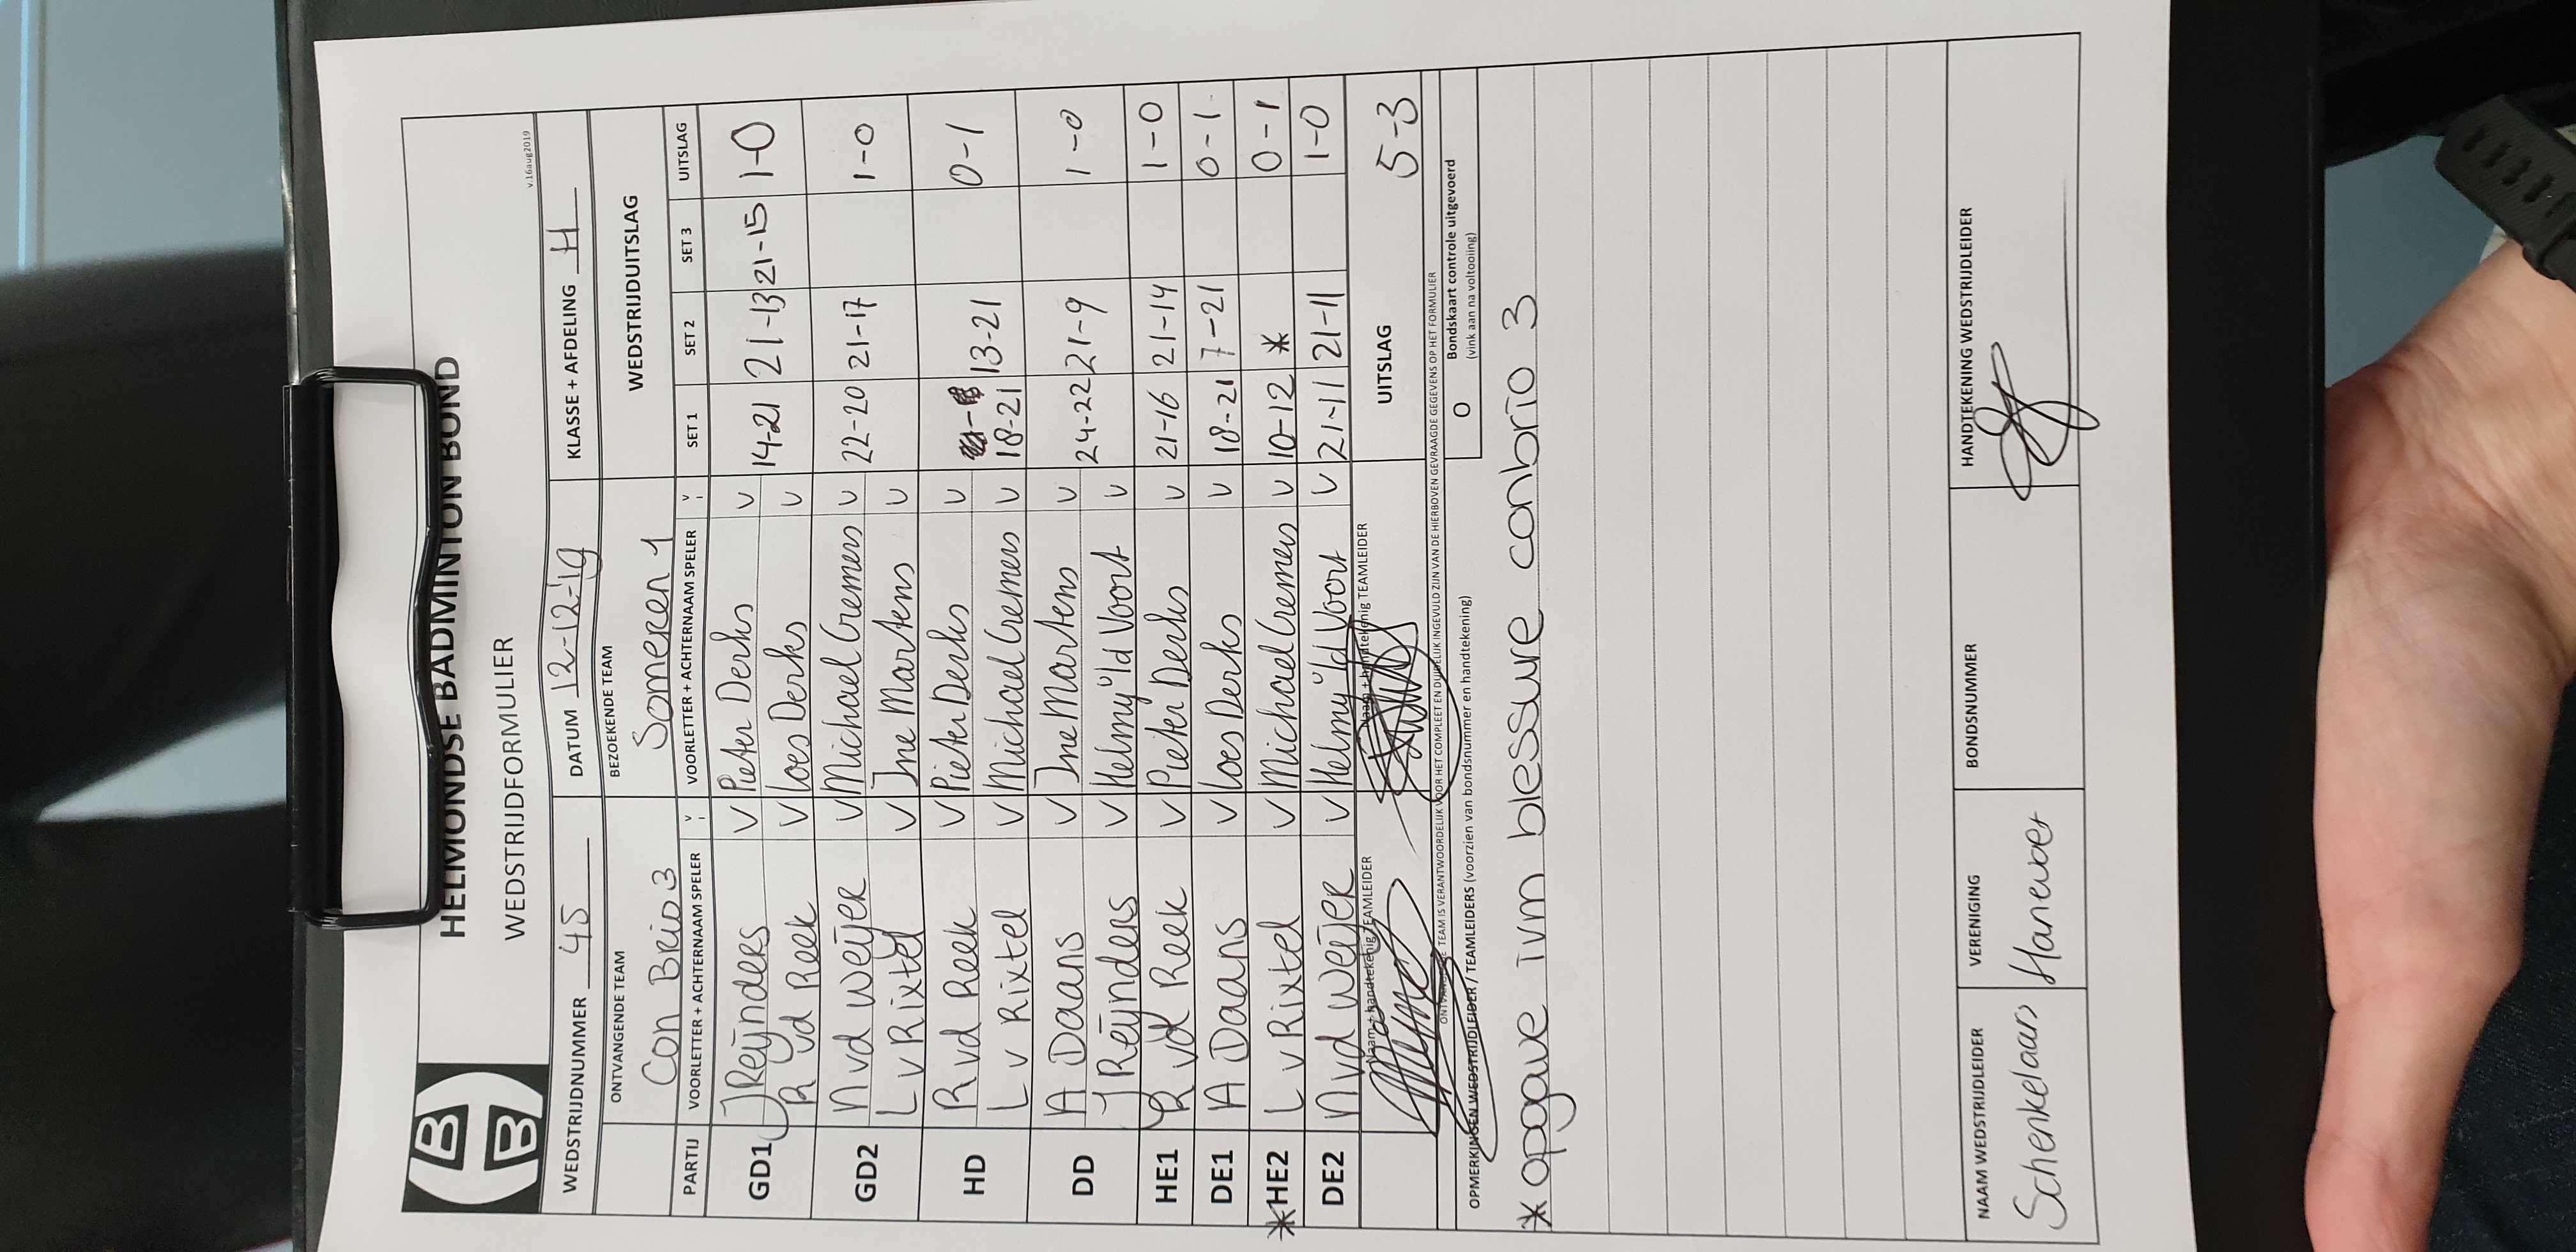 HELMONDSE BADMINTON BOND
WEDSTRIJDFORMULIER
v.16aug2019
HBB
WEDSTRIJDNUMMER 45 DATUM 12-12-'19 KLASSE + AFDELING H
ONTVANGENDE TEAM BEZOEKENDE TEAM WEDSTRIJDUITSLAG
Con Brio 3 Someren 1
PARTIJ VOORLETTER + ACHTERNAAM SPELER V VOORLETTER + ACHTERNAAM SPELER V SET 1 SET 2 SET 3 UITSLAG
GD1 J Reijnders V Pieter Derks V 14-21 21-13 21-15 1-0
R vd Reek V Loes Derks V
GD2 N vd Weijer V Michael Cremers V 22-20 21-17 1-0
L v Rixtel V Ine Martens V
HD R vd Reek V Pieter Derks V 18-21 13-21 0-1
L v Rixtel V Michael Cremers V
DD A Daans V Ine Martens V 24-22 21-9 1-0
J Reijnders V Helmy v/d Voort V
HE1 R vd Reek V Pieter Derks V 21-16 21-14 1-0
DE1 A Daans V Loes Derks V 18-21 7-21 0-1
*HE2 L v Rixtel V Michael Cremers V 10-12 * 0-1
DE2 N vd Weijer V Helmy v/d Voort V 21-11 21-11 1-0
Naam + handtekenig TEAMLEIDER Naam + handtekenig TEAMLEIDER UITSLAG 5-3
ONTVANGENDE TEAM IS VERANTWOORDELIJK VOOR HET COMPLEET EN DUIDELIJK INGEVULD ZIJN VAN DE HIERBOVEN GEVRAAGDE GEGEVENS OP HET FORMULIER
OPMERKINGEN WEDSTRIJDLEIDER / TEAMLEIDERS (voorzien van bondsnummer en handtekening)
O Bondskaart controle uitgevoerd
(vink aan na voltooiing)
* opgave ivm blessure conbrio 3
NAAM WEDSTRIJDLEIDER VERENIGING BONDSNUMMER HANDTEKENING WEDSTRIJDLEIDER
Schenkelaars Hanevoet